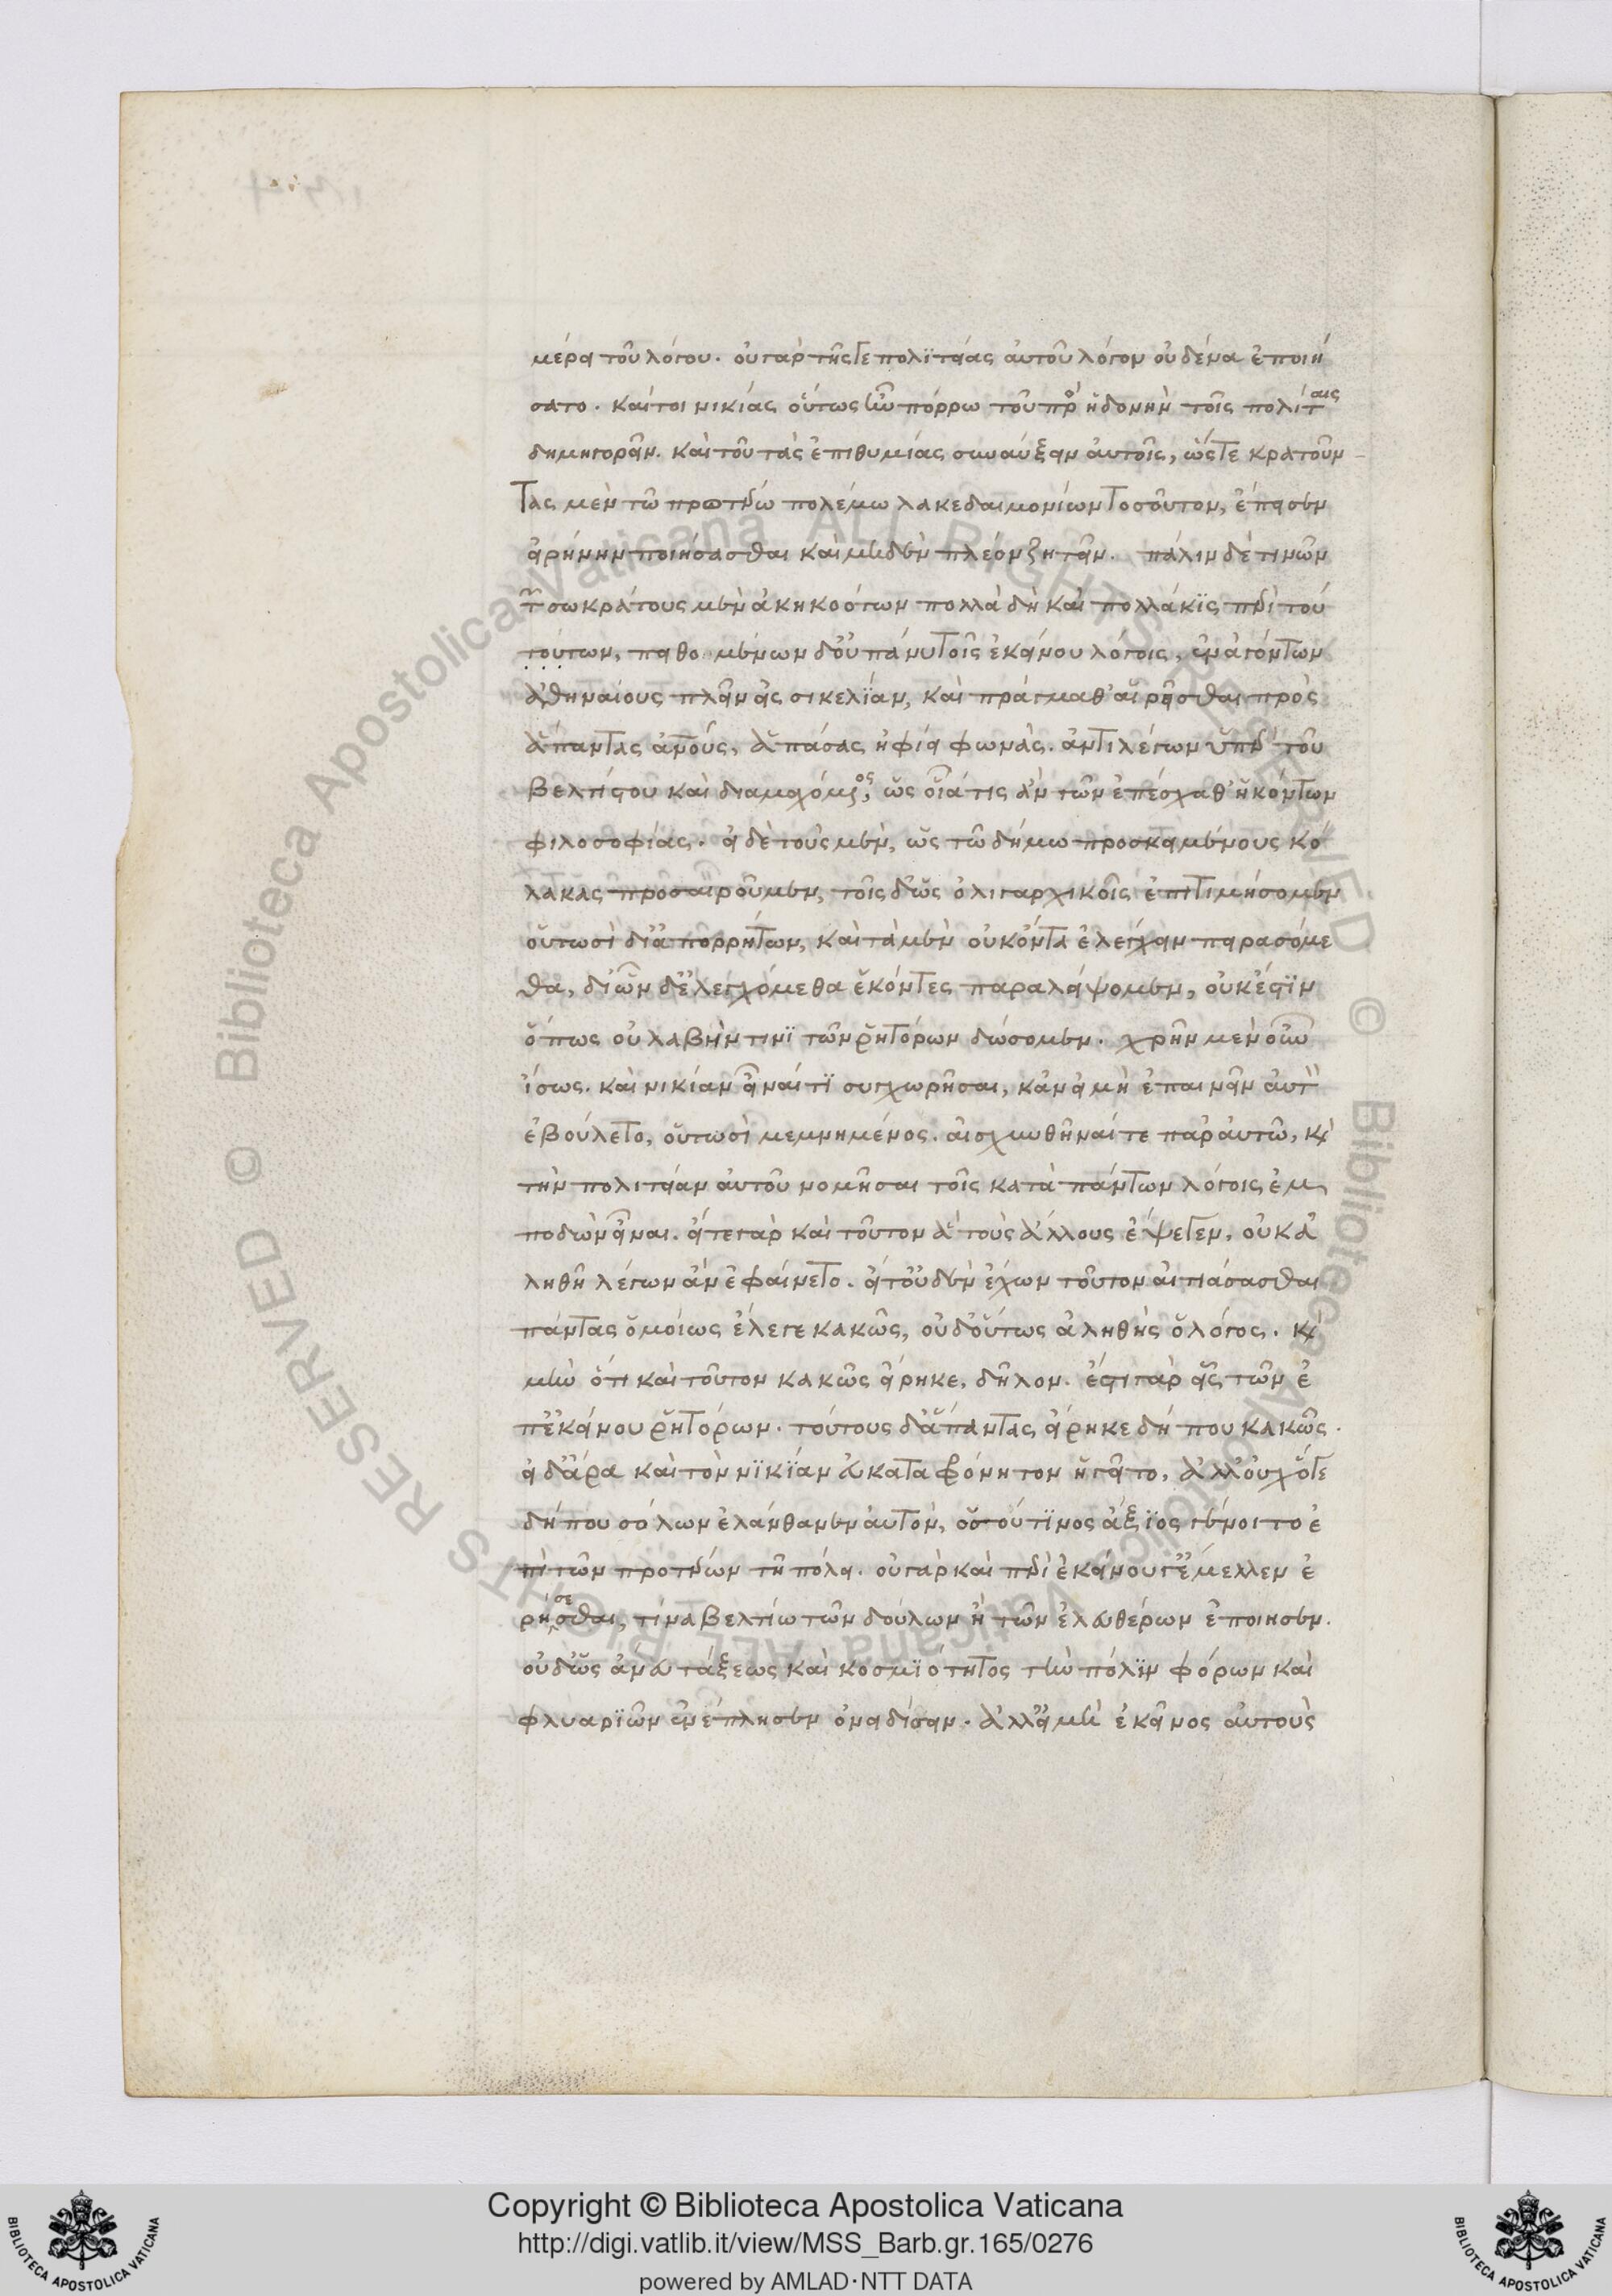 μέρει τοῦ λόγου. οὐ γὰρ τῆς γε πολϊτείας αὐτοῦ λόγον οὐδένα ἐποιή
σατο. καίτοι νικίας οὕτως ἦν πόρρω τοῦ πρὸς ἡδονὴν τοῖς πολίταις
δημηγορεῖν. καὶ τοῦ τὰς ἐπιθυμίας συναύξειν αὐτοῖς, ὥστε κρατοῦν
τας μὲν τῶ προτέρω πολέμω λακεδαιμονίων τοσοῦτον, ἔπεισεν
εἰρήνην ποιήσασθαι καὶ μηδὲν πλέον ζητεῖν. πάλιν δὲ τινῶν
τῶν σωκράτους μὲν ἀκηκοότων πολλὰ δὴ καὶ πολλάκϊς περὶ του
τούτων, πειθομένων δ' οὐ πάνυ τοῖς ἐκείνου λόγοις, ἐναγόντων
ἀθηναίους πλεῖν εἰς σικελίαν, καὶ πράγμαθ' αἱρεῖσθαι πρὸς
ἅπαντας ἀνθρώπους, ἁπάσας ἠφίει φωνάς. ἀντιλέγων ὑπὲρ τοῦ
βελτίστου καὶ διαμαχόμενος, ὡς οἷά τις ἂν τῶν ἐπ' ἔσχαθ' ἡκόντων
φιλοσοφίας. εἰ δὲ τοὺς μὲν, ὡς τῶ δήμω προσκειμένους κό
λακας προσαιροῦμεν, τοῖς δ' ὡς ὀλιγαρχικοῖς ἐπιτιμήσομεν
οὑτωσὶ δι' ἀπορρήτων, καὶ τὰ μὲν οὐκ ὄντα ἐλέγχειν πειρασόμε
θα, δι' ὧν δ' ἐλεγχόμεθα ἑκόντες παραλείψομεν, οὐκ ἔστϊν
ὅπως οὐ λαβὴν τινὶ τῶν ῥητόρων δώσομεν. χρῆν μὲν οὖν
ἴσως. καὶ νικίαν εἶναί τϊ συγχωρῆσαι, κἂν εἰ μὴ ἐπαινεῖν αὐτὸν
ἐβούλετο, οὑτωσὶ μεμνημένος. αἰσχυνθῆναί τε παρ' αὐτῶ, καὶ
τὴν πολιτείαν αὐτοῦ νομῆσαι τοῖς κατὰ πάντων λόγοις ἐμ
ποδὼν εἶναι. εἴτε γὰρ καὶ τοῦτον ἃ τοὺς ἄλλους ἔψεγεν, οὐκ ἀ
ληθῆ λέγων ἂν ἐφαίνετο. εἴτ' οὐδὲν ἔχων τοῦτον αἰτιάσασθαι
πάντας ὁμοίως ἔλεγε κακῶς, οὐδ' οὕτως ἀληθὴς ὁ λόγος. καὶ
μὴν ὅτι καὶ τοῦτον κακῶς εἴρηκε, δῆλον. ἔστι γὰρ εἷς τῶν ἐ
π' ἐκείνου ῥητόρων. τούτους δ' ἅπαντας εἴρηκε δή που κακῶς.
εἰ δ' ἄρα καὶ τὸν νϊκϊαν εὐκαταφρόνητον ἡγεῖτο, ἀλλ' οὐχ ὅγε
δήπου σόλων ἐλάνθανεν αὐτὸν, ὅστ' οὔτϊνος ἄξϊος γένοιτο ἐ
πὶ τῶν προτέρων τῆ πόλει. οὐ γὰρ καὶ περὶ ἐκείνου γ' ἔμελλεν ἐ
ρήσεσθαι, τίνα βελτίω τῶν δούλων ἢ τῶν ἐλευθέρων ἐποιησεν.
οὐδ' ὡς ἀντ' εὐταξεως καὶ κοσμϊότητος τὴν πόλϊν φόρων καὶ
φλυαρϊῶν ἐνέπλησεν ὀνειδίσειν. ἀλλὰ μὴν ἐκεῖνος αὐτοὺς